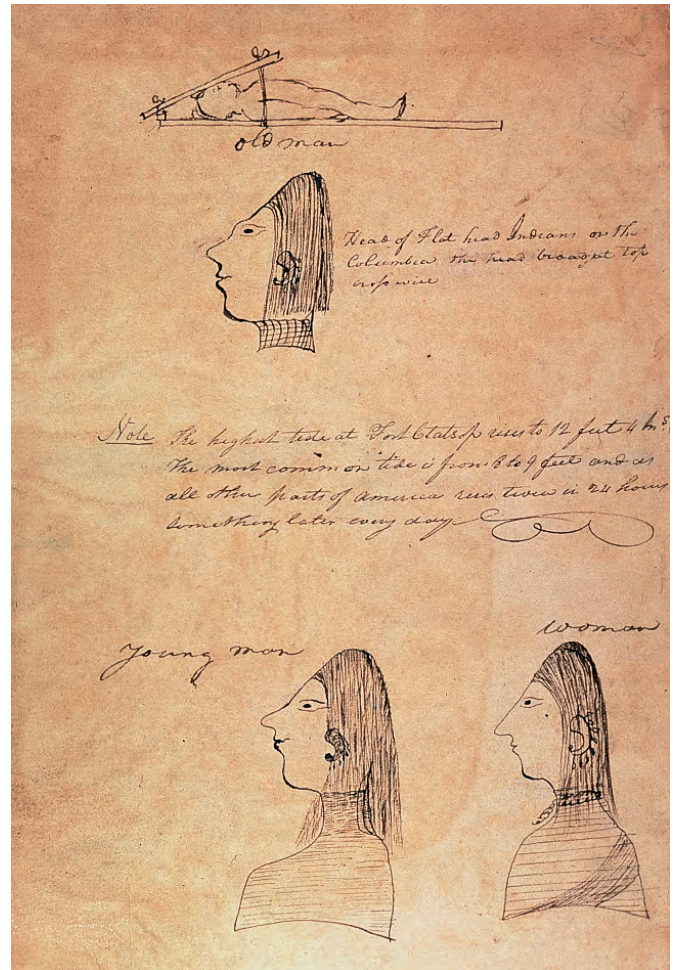 old man
Head of Flat head Indians on the
Columbia the head broad at top
crosswise
Note The highest tide at Fort Clatsop rises to 12 feet 4 Ins.
The most common tide is from 8 to 9 feet and as
all other parts of America rises twice in 24 hours
something later every day
Young man
Woman